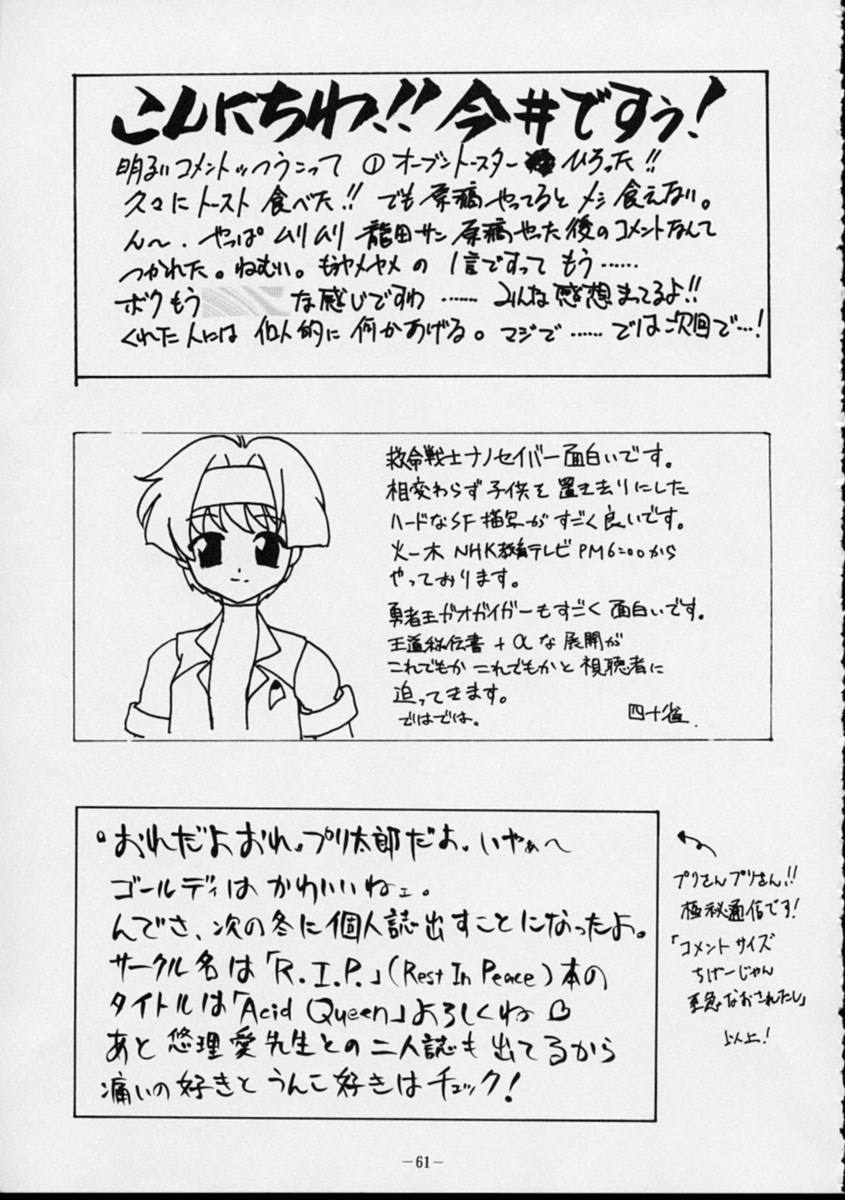 こんにちわ!! 今井ですぅ!
明るいコメントっつうこって ①オーブントースター ひろった!!
久々にトースト食べた!! でも原稿やってるとメシ食えない。
ん〜. やっぱムリムリ 龍田サン原稿やった後のコメントなんて
つかれた。ねむい。もぉヤメヤメの1言ですって もう……
ボクもう な感じですわ …… みんな感想まってるよ!!
くれた人には 個人的に何かあげる。マジで …… では次回で…!
救命戦士ナノセイバー面白いです。
相交わらず子供を置き去りにした
ハードなSF描写がすごく良いです。
火ー木 NHK教育テレビ PM6:00から
やっております。
勇者王ガオガイガーもすごく面白いです。
王道秘伝書+αな展開が
これでもかこれでもかと視聴者に
迫ってきます。
ではでは。
四十雀.
おれだよおれ。プリ太郎だよ。いやぁ〜
ゴールディはかわいいねェ。
んでさ、次の冬に個人誌出すことになったよ。
サークル名は「R.I.P.」(Rest In Peace)本の
タイトルは「Acid Queen」よろしくね♡
あと悠理愛先生との二人誌も出てるから
痛いの好きとうんこ好きはチェック!
プリさんプリさん!!
極秘通信です!
「コメントサイズ
ちげーじゃん
至急なおされたし」
以上!
－61－